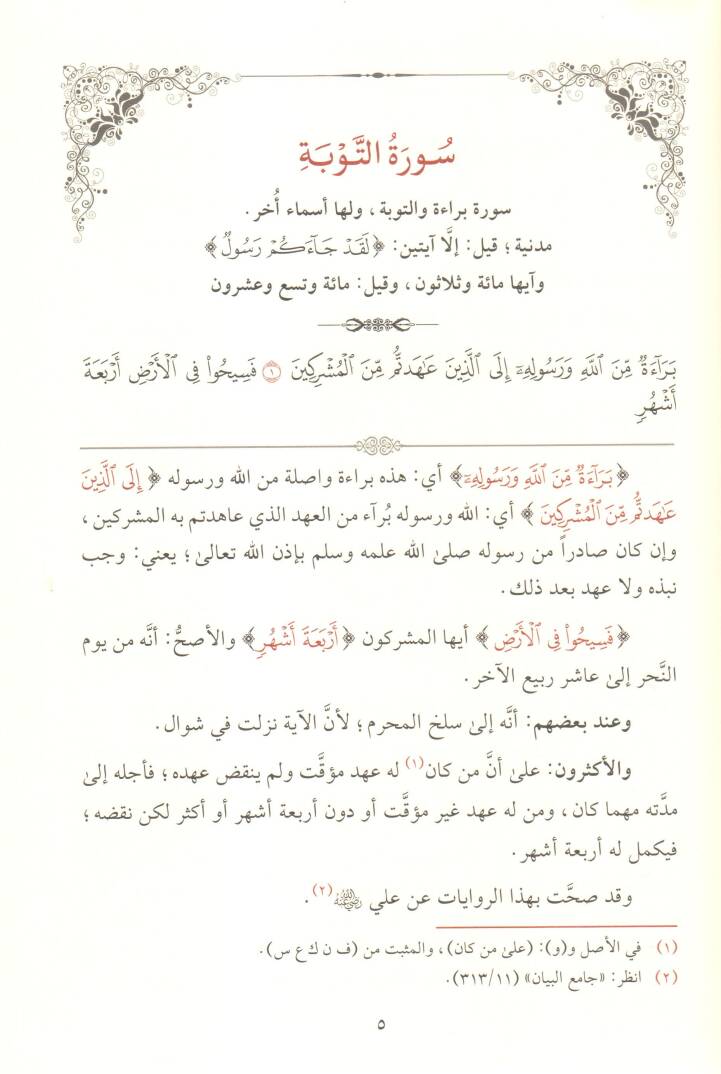 سُورَةُ التَّوْبَةِ
سورة براءة والتوبة، ولها أسماء أُخر.
مدنية؛ قيل: إلَّا آيتين: ﴿لَقَدْ جَاءَكُمْ رَسُولٌ﴾
وآيها مائة وثلاثون، وقيل: مائة وتسع وعشرون
بَرَاءَةٌ مِّنَ اللَّهِ وَرَسُولِهِۦٓ إِلَى الَّذِينَ عَٰهَدتُّم مِّنَ الْمُشْرِكِينَ ۝١ فَسِيحُوا۟ فِي الْأَرْضِ أَرْبَعَةَ
أَشْهُرٍ
﴿بَرَاءَةٌ مِّنَ اللَّهِ وَرَسُولِهِۦٓ﴾ أي: هذه براءة واصلة من الله ورسوله ﴿إِلَى الَّذِينَ
عَٰهَدتُّم مِّنَ الْمُشْرِكِينَ﴾ أي: الله ورسوله بُرآء من العهد الذي عاهدتم به المشركين،
وإن كان صادراً من رسوله صلىٰ الله علمه وسلم بإذن الله تعالىٰ؛ يعني: وجب
نبذه ولا عهد بعد ذلك.
﴿فَسِيحُوا۟ فِي الْأَرْضِ﴾ أيها المشركون ﴿أَرْبَعَةَ أَشْهُرٍ﴾ والأصحُّ: أنَّه من يوم
النَّحر إلىٰ عاشر ربيع الآخر.
وعند بعضهم: أنَّه إلىٰ سلخ المحرم؛ لأنَّ الآية نزلت في شوال.
والأكثرون: علىٰ أنَّ من كان(١) له عهد مؤقَّت ولم ينقض عهده؛ فأجله إلىٰ
مدَّته مهما كان، ومن له عهد غير مؤقَّت أو دون أربعة أشهر أو أكثر لكن نقضه؛
فيكمل له أربعة أشهر.
وقد صحَّت بهذا الروايات عن علي رضي الله عنه(٢).
(١) في الأصل و(و): (علىٰ من كان)، والمثبت من (ف ن ك ع س).
(٢) انظر: «جامع البيان» (٣١٣/١١).
٥